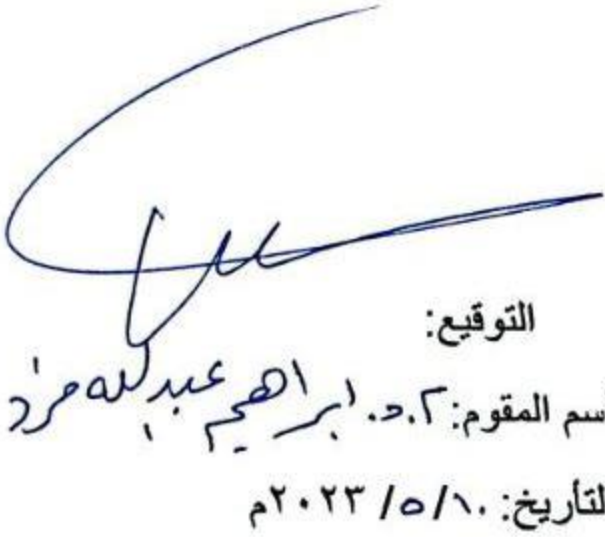 التوقيع:
اسم المقوم: أ.د. ابراهيم عبدالله
التأريخ: ١٠/ ٥/ ٢٠٢٣م